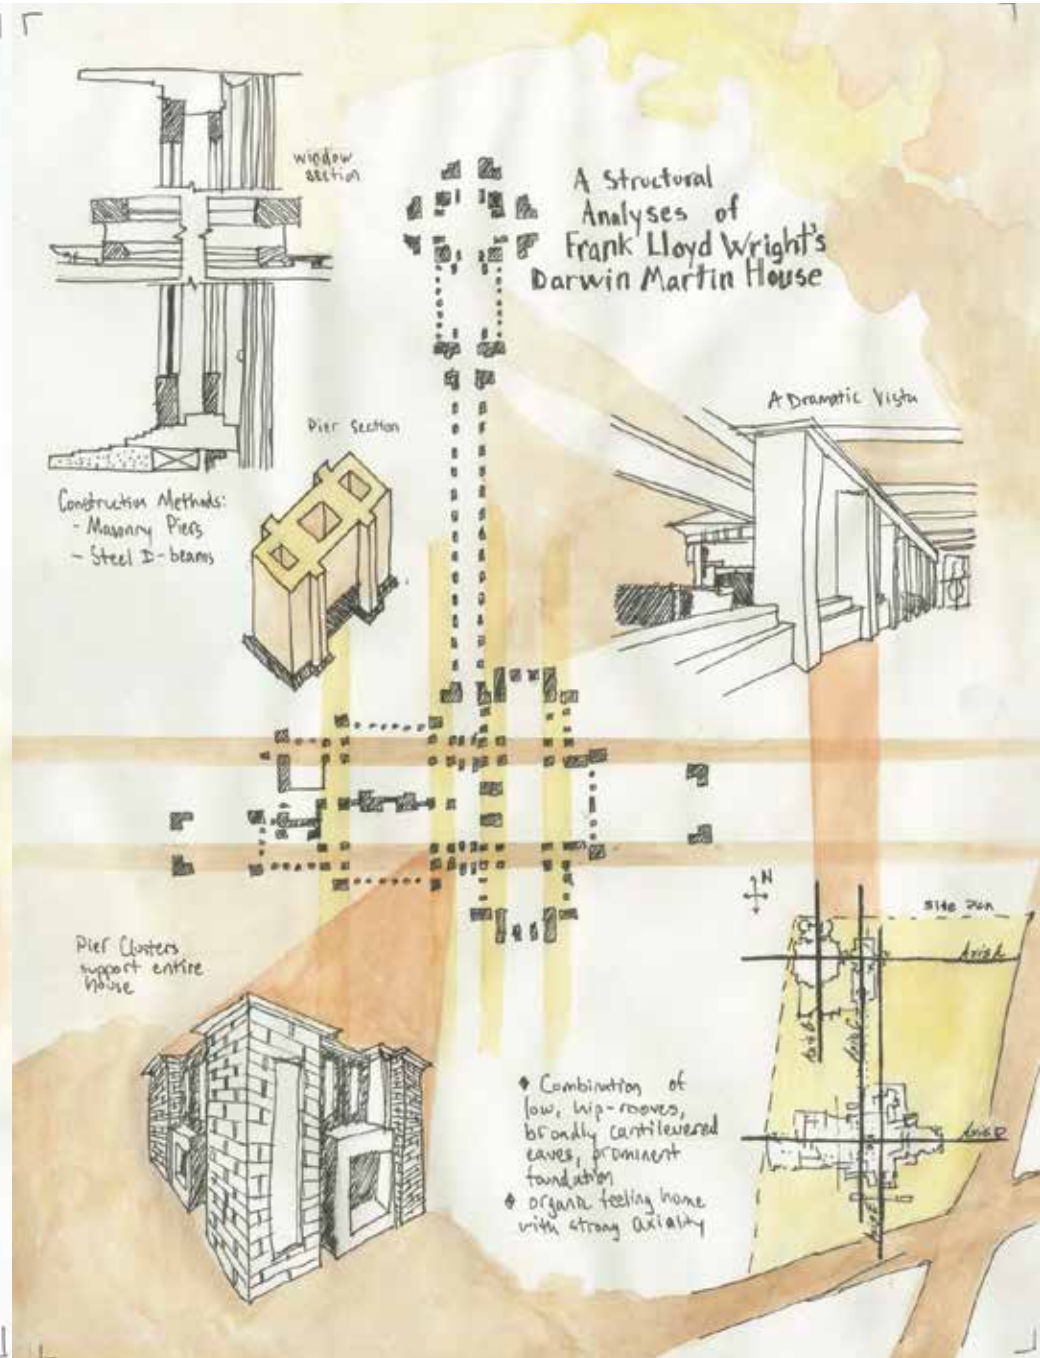 window
section
A Structural
Analyses of
Frank Lloyd Wright's
Darwin Martin House
A Dramatic Vista
Pier Section
Construction Methods:
- Masonry Piers
- Steel I-beams
N
Site Plan
Axis A
Axis B
Axis C
Axis D
Axis E
Pier Clusters
support entire
house
◆ Combination of
low, hip-rooves,
broadly cantilevered
eaves, prominent
foundation
◆ organic feeling home
with strong axiality